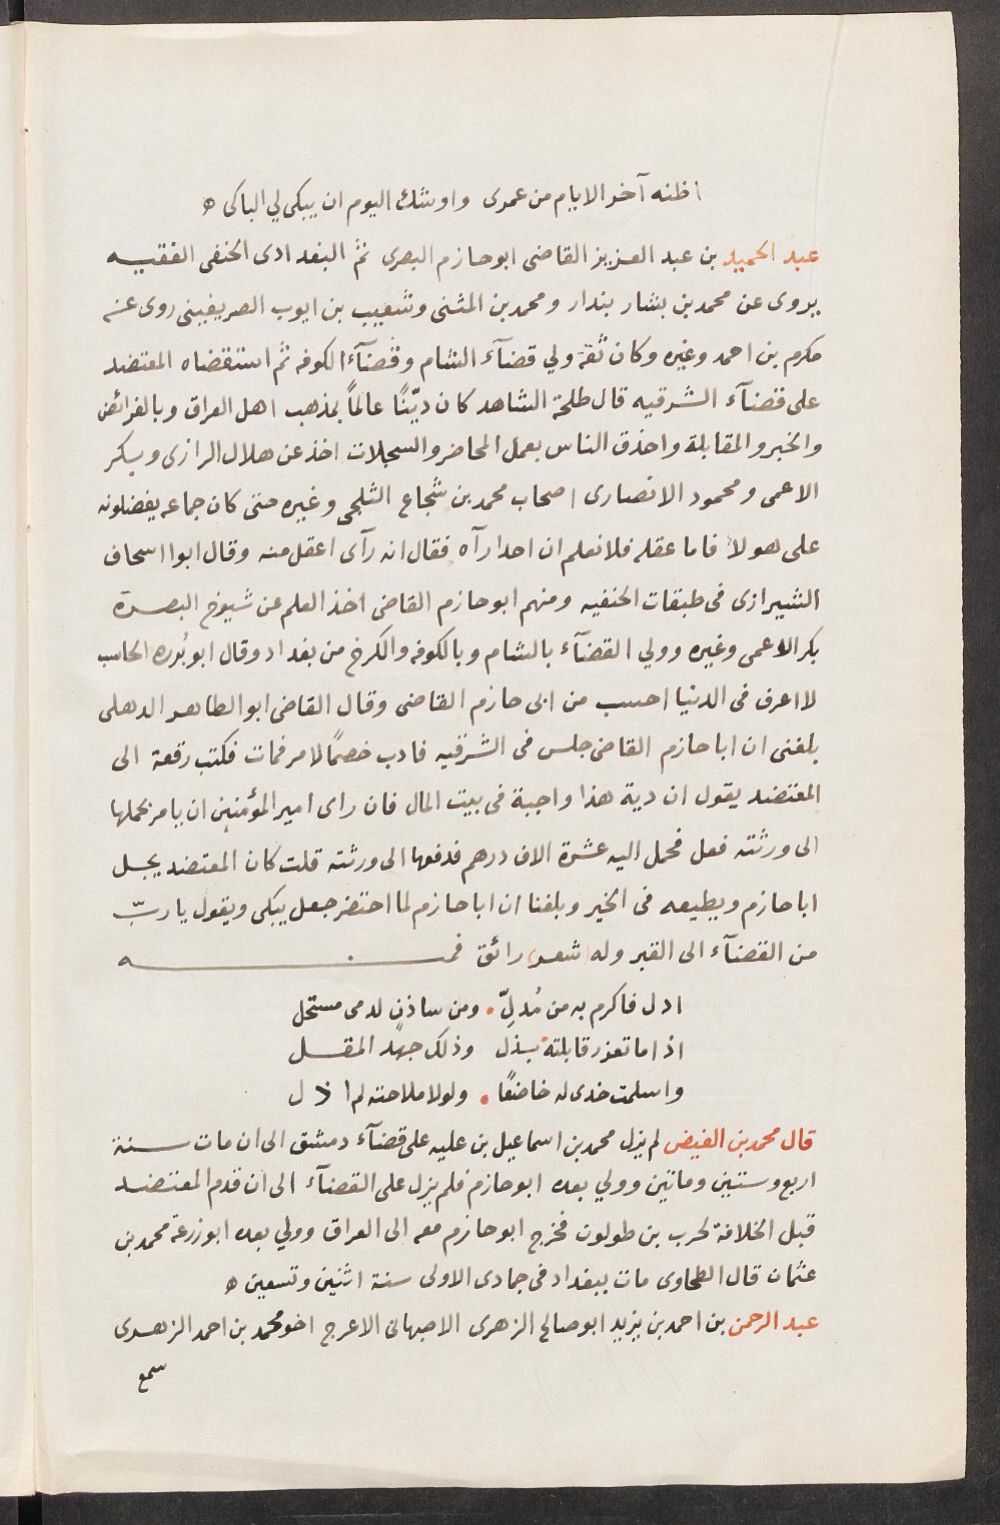 اظنه آخر الايام من عمرى واوشك اليوم ان يبكى لي الباكى ه
عبد الحميد بن عبد العزيز القاضى ابو حازم البصرى ثم البغدادى الحنفى الفقيه
يروى عن محمد بن بشار بندار ومحمد بن المثنى وشعيب بن ايوب الصريفينى روى عنه
مكرم بن احمد وغيره وكان ثقة ولي قضآء الشام وقضآء الكوفه ثم استقضاه المعتضد
على قضآء الشرقيه قال طلحة الشاهد كان ديّنًا عالماً بمذهب اهل العراق وبالفرائض
والجبر والمقابلة واحذق الناس بعمل المحاضر والسجلات اخذ عن هلال الرازى وبكر
الاعمى ومحمود الانصارى اصحاب محمد بن شجاع الثلجى وغيره حتى كان جماعه يفضلونه
على هولآ فاما عقله فلا نعلم ان احدا رآه فقال انه رآى اعقل منه وقال ابوا اسحاق
الشيرازى فى طبقات الحنفيه ومنهم ابو حازم القاضى اخذ العلم عن شيوخ البصرة
بكر الاعمى وغيره وولي القضآء بالشام وبالكوفه والكرخ من بغداد وقال ابو بُوره الحاسب
لا اعرف فى الدنيا احسب من ابى حازم القاضى وقال القاضى ابو الطاهر الدهلى
بلغنى ان ابا حازم القاضى جلس فى الشرقيه فادب خصمًا لامر فمات فكتب رقعة الى
المعتضد يقول ان دية هذا واجبة فى بيت المال فان راى امير المؤمنين ان يامر بحملها
الى ورثته فعل فحمل اليه عشرة الاف درهم فدفعها الى ورثته قلت كان المعتضد يجل
ابا حازم ويطيعه فى الخير وبلغنا ان ابا حازم لما احتضر جعل يبكى ويقول يا ربّ
من القضآء الى القبر وله شعر رائق فمنه
ادل فاكرم به من مُدلِّ . ومن ساذنٍ لدمى مستحل
اذا ما تعزز قابلته بذل وذلك جهد المقل
واسلمت خدى له خاضعًا . ولولا ملاحته لم اذ ل
قال محمد بن الفيض لم يزل محمد بن اسماعيل بن عليه على قضآء دمشق الى ان مات سنة
اربع وستين وماتين وولي بعده ابو حازم فلم يزل على القضآء الى ان قدم المعتضد
قبل الخلافة لحرب بن طولون فخرج ابو حازم معه الى العراق وولي بعده ابو زرعة محمد بن
عثمان قال الطحاوى مات ببغداد فى جمادى الاولى سنة اثنين وتسعين ه
عبد الرحمن بن احمد بن يزيد ابو صالح الزهرى الاصبهانى الاعرج اخو محمد بن احمد الزهرى
سمع